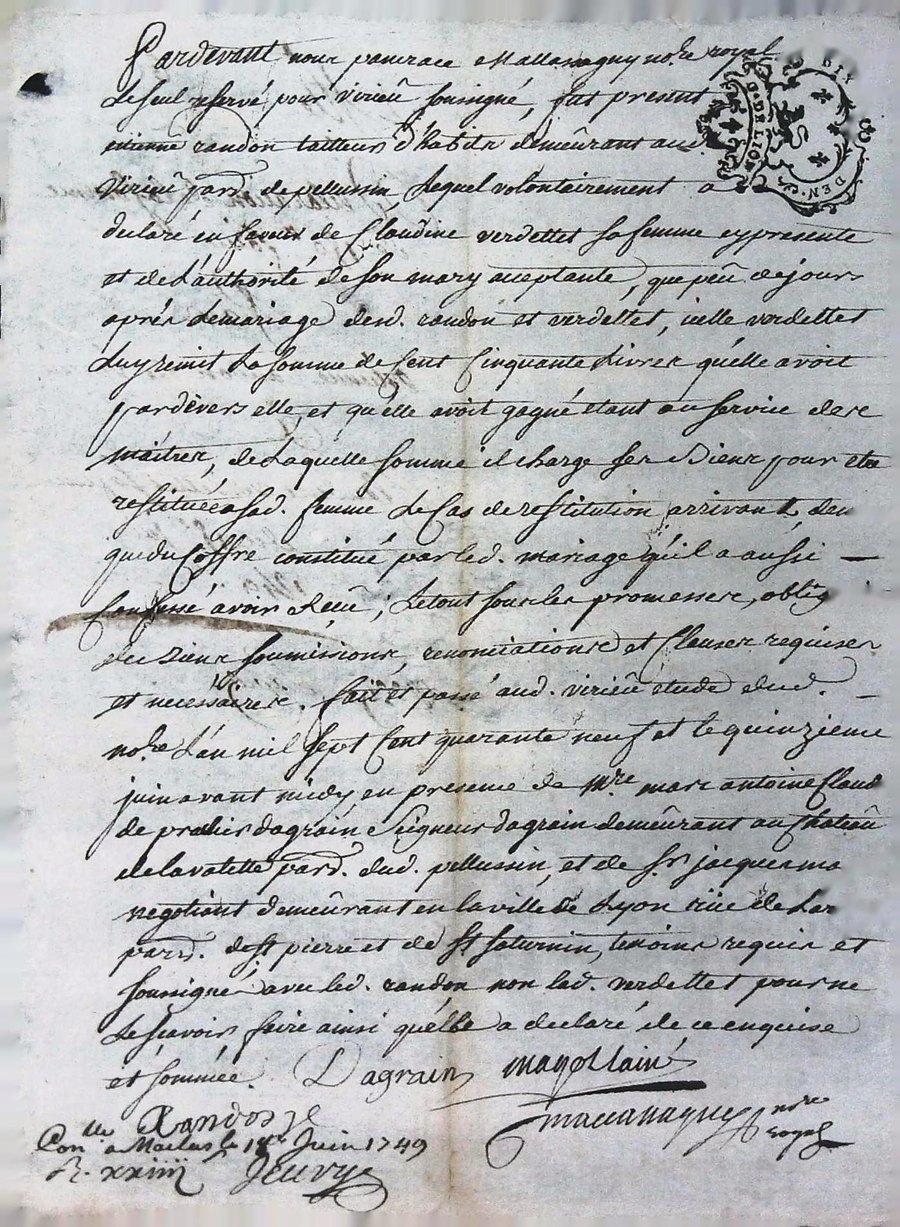 Pardevant nous pancrace Mallassagny no.re royal
Le seul reservé pour virieû soussigné, fut present
etienne randon tailleur d'habits demeurant aud.
virieû parr. de pellussin Lequel volontairement a
declaré en faveur de Claudine verdettet sa femme cy presente
et de L'authorité de son mary aceptante, que peu de jours
aprés Le mariage desd. randon et verdettet, icelle verdettet
Luy remit La somme de Cent Cinquante Livres qu'elle avoit
pardevers elle, et qu'elle avoit gagné etant au service de se
maitres, de Laquelle somme il charge ses Biens pour etre
restituée a sad. femme Le Cas de restitution arrivant
que du Coffre constitué par led. mariage qu'il a aussi
Confessé avoir Receû; Le tout sous les promesses, oblig
des Biens soumissions, renonciations et Clauses requises
et necessaires. fait et passé aud. virieû etude dud.
no.re L'an mil sept Cent quarante neuf et le quinzieme
juin avant midy en presence de M.re marc antoine Claud
de pradier dagrain Seigneur dagrain demeurant au Chateau
de la valette parr. dud. pellussin, et de S.r jacques ma
negotiant demeurant en la ville de Lyon rüe de Lar
parr. de st pierre et de St saturnin, temoins requis et
soussignés avec led. randon non lad. verdettet pour ne
Le scavoir faire ainsi qu'elle a declaré de ce enquise
et sommée. Dagrain mayollain
Randon
no.re royal
Con.lle a Maclas le 18e Juin 1749
R. xxiiij
DEN.
G. DE LION